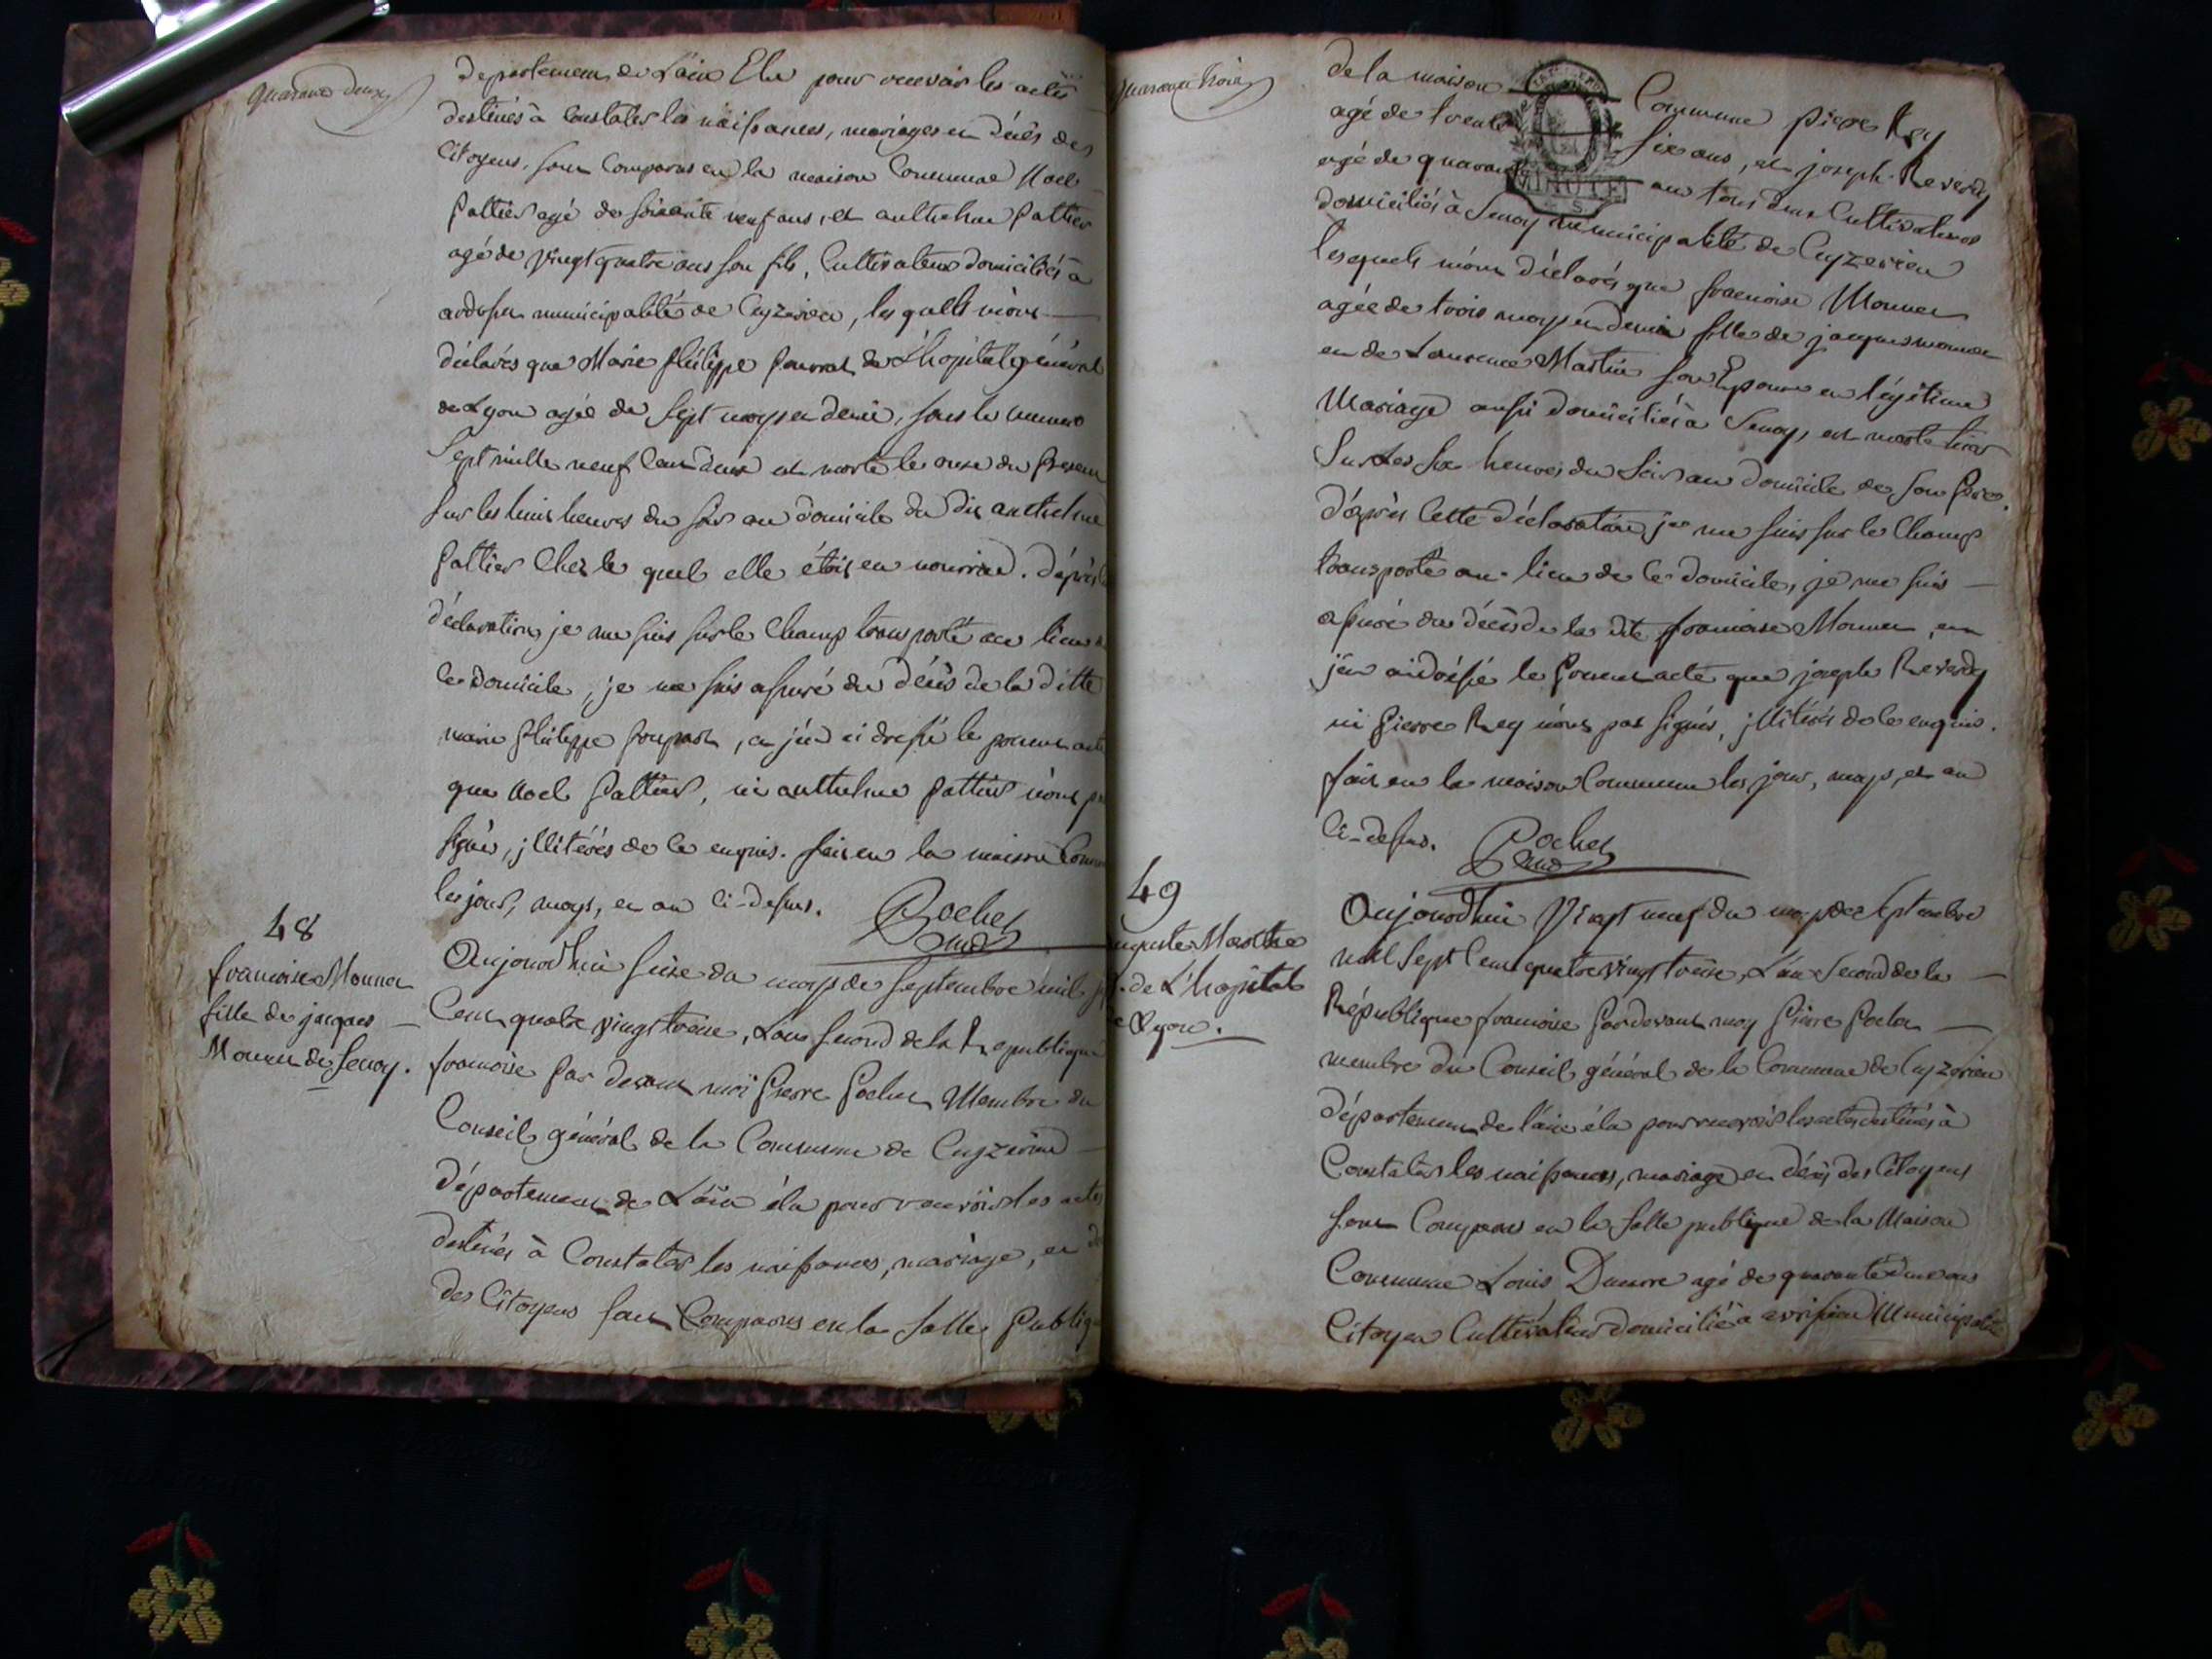 quarante deux
departement de L'ain Elu pour recevoir les actes
destinés à Constater les naissances, mariages et décès des
Citoyens, sont Comparus en la maison Commune Noel
pattier agé de soixante neuf ans, et anthelme pattier
agé de vingt quatre ans son fils, Cultivateurs domiciliés à
municipalité de Cuyzerieu, les quells m'ont
déclarés que Marie philippe de L'hopital général
de Lyon agée de sept moys et demie, sous le numero
Sept mille neuf Cent deux est morte le onse du present
sur les huit heures du soir au domicile du dit anthelme
pattier Chez le quel elle étoit en nourrice. D'après
déclaration je me suis sur le Champ transporté au lieu
ce domicile, je me suis assuré du décès de la ditte
marie philippe, et j'en ai dressé le présent acte
que Noel pattier, ni anthelme pattier n'ont
signés, jllitérés de ce enquis. fait en la maison
les jour, moys, et an Ci-dessus. Pochet
48
francoise Monnet
fille de jacques
Monnet de Senoy.
Aujourd'hui seise du moys de Septembre mil
Cent quatre vingt treise, L'an second de la Republique
francoise par devant moi pierre pochet Membre du
Conseil général de la Commune de Cuyzerieu
département de L'ain élu pour recevoir les actes
destinés à Constater les naissances, mariage, et
des Citoyens sont Comparus en la salle
quarante trois
de la maison Commune pierre Rey
agé de trente six ans, et joseph Reverdy
agé de quarante ans tous deux Cultivateurs
domiciliés à Senoy municipalité de Cuyzerieu
lesquels m'ont déclarés que francoise Monnet
agée de trois moys et demie fille de jacques monnet
et de Laurence Martin son Epouse en légitime
Mariage aussi domiciliés à Senoy, est morte hier
Sur Les six heures du Soir au domicile de son père.
D'après Cette déclaration je me suis sur le Champ
transporté au lieu de ce domicile, je me suis
assuré du décès de la dite francoise Monnet, et
j'en ai dréssé le présent acte que joseph Reverdy
ni pierre Rey n'ont pas signés, jllitérés de ce enquis.
fait en la maison Commune les jour, moys, et an
Ci-dessus. Pochet
49
Marthe
de L'hopital
Lyon.
Aujourd'hui vingt neuf du moys de Septembre
mil Sept Cent quatre vingt treise, L'an Second de la
République francoise par devant moy pierre pochet
membre du Conseil général de la Commune de Cuyzerieu
département de l'ain élu pour recevoir les actes destinés à
Constater les naissances, mariage et décès des Citoyens
sont Comparus en la salle publique de la Maison
Commune Louis agé de quarante deux ans
Citoyen Cultivateur domicilié à Municipalité